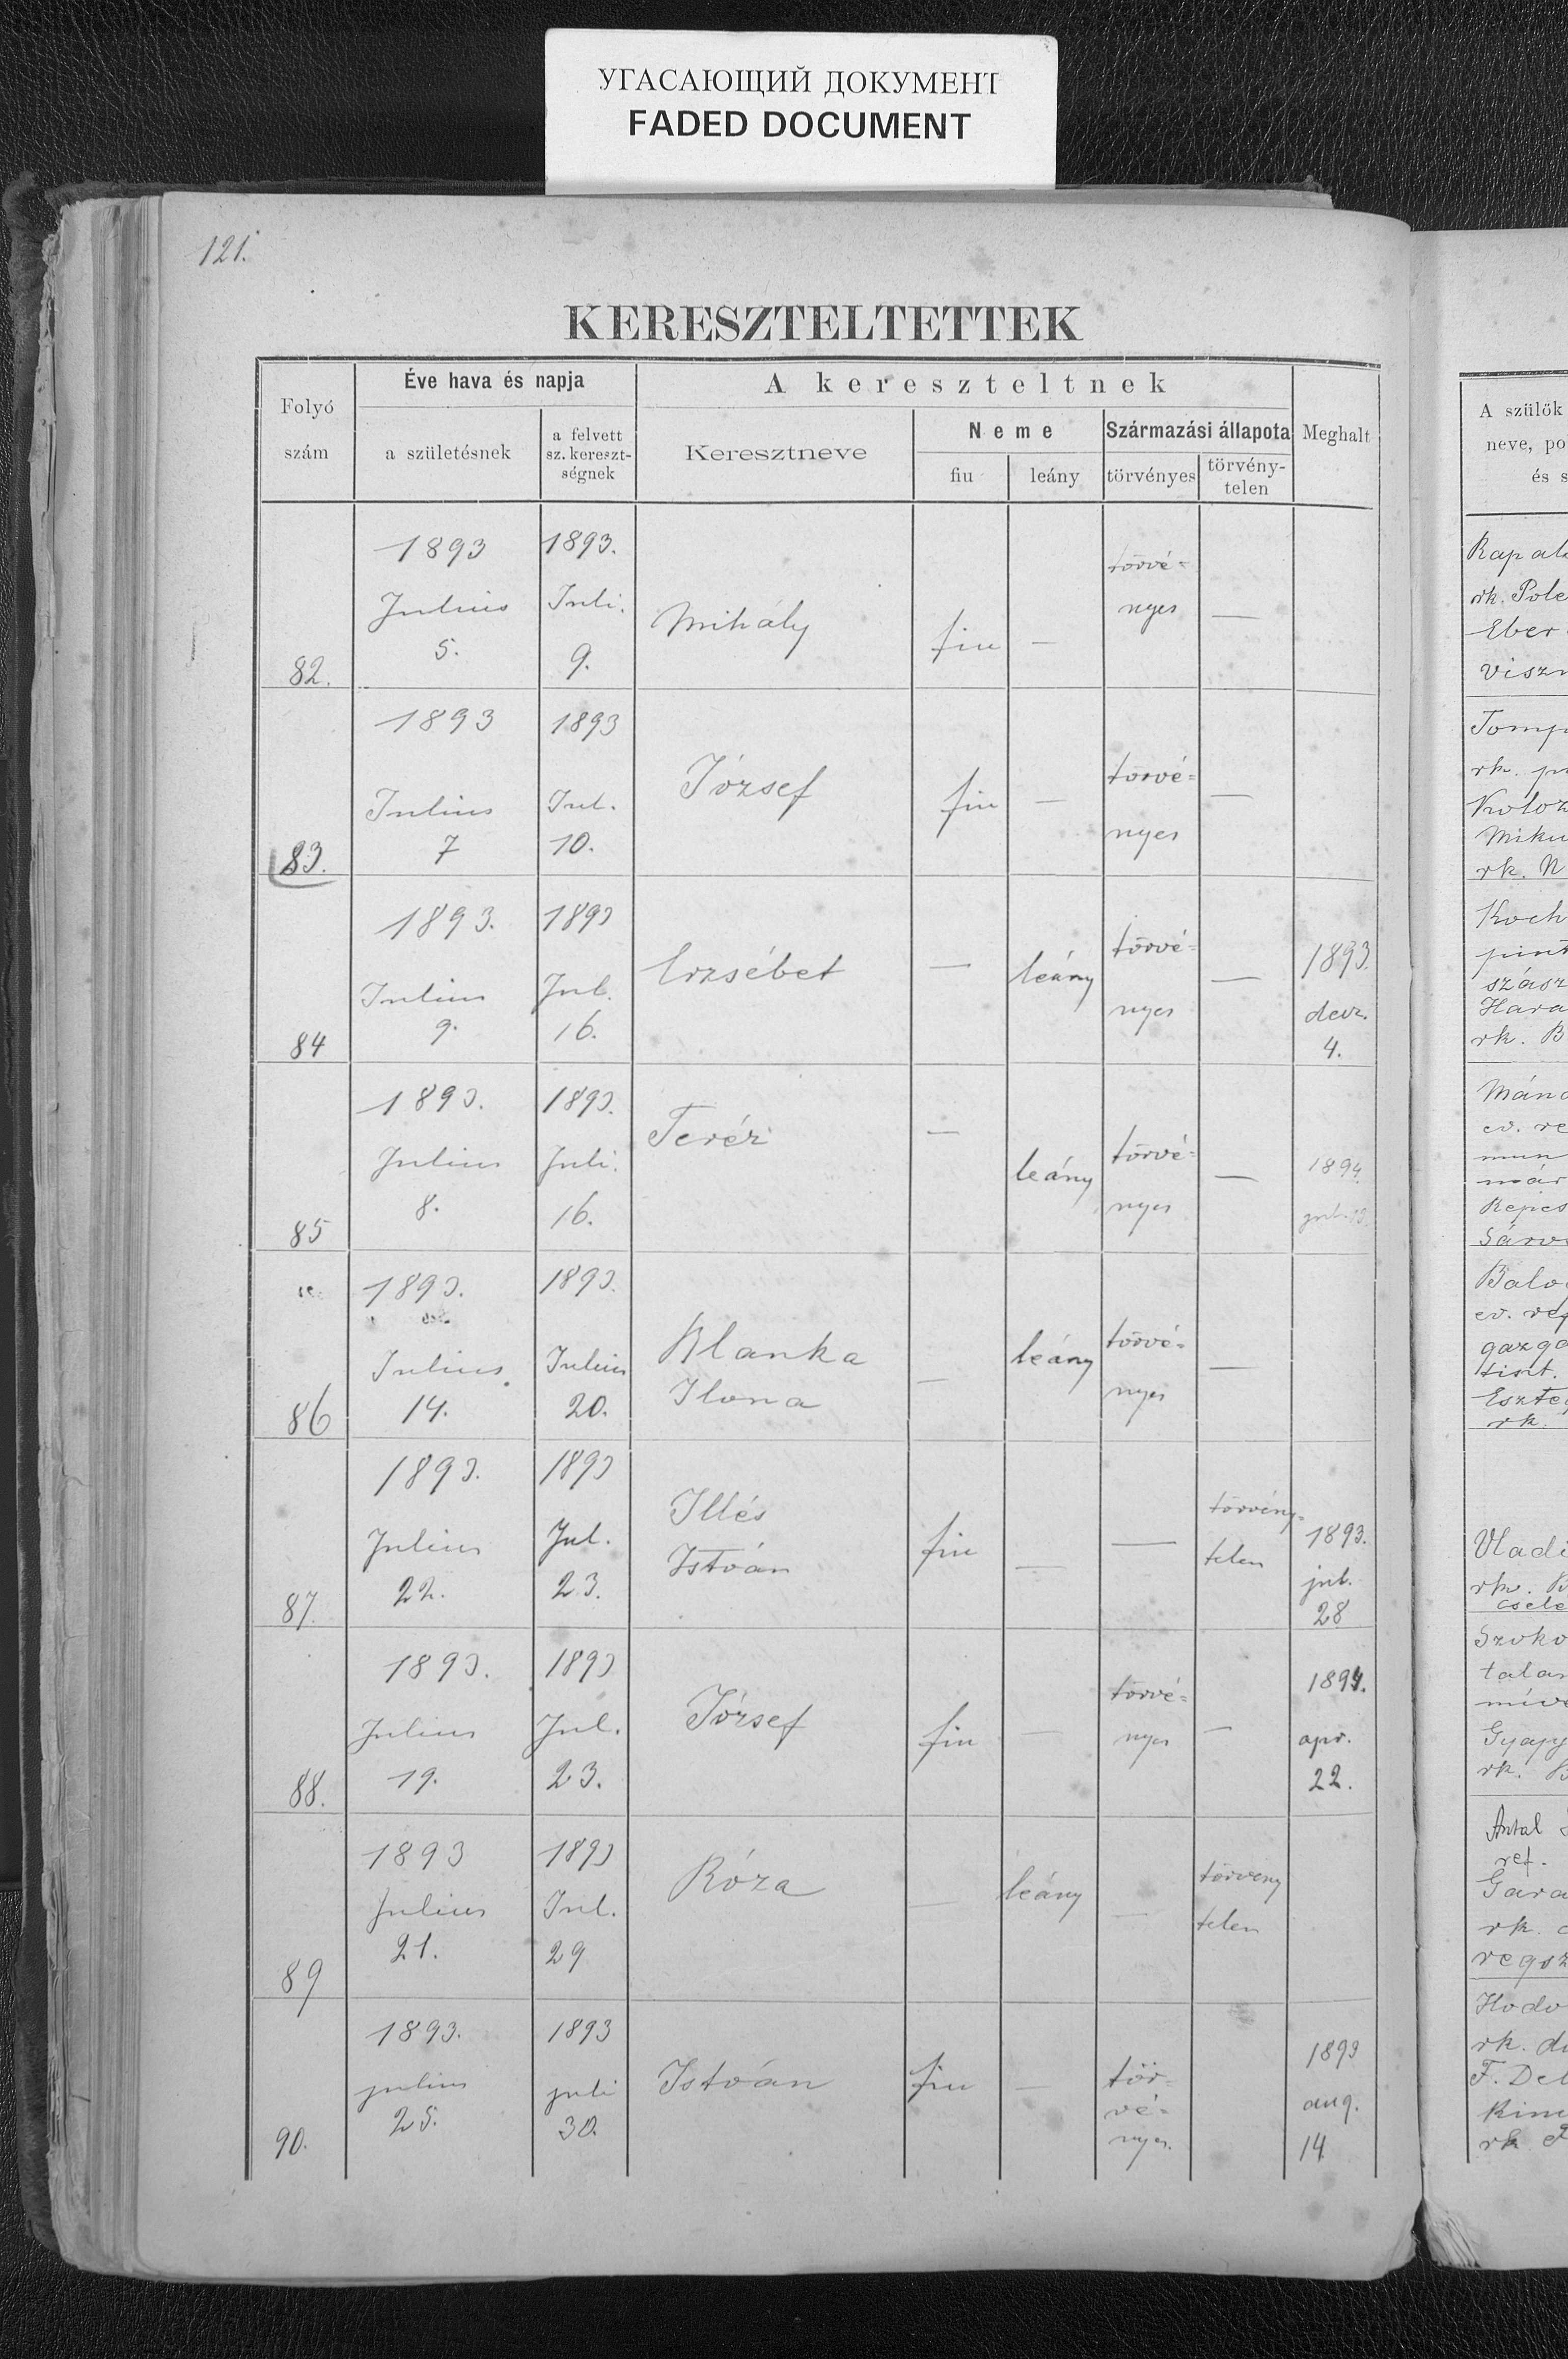 УГАСАЮЩИЙ ДОКУМЕНТ
FADED DOCUMENT
121.
KERESZTELTETTEK
Folyó
szám
Éve hava és napja
a születésnek
a felvett
sz. kereszt-
ségnek
A kereszteltnek
Keresztneve
Neme
fiu
leány
Származási állapota
törvényes
törvény-
telen
Meghalt
A szülők
neve, po
és s
82.
1893
Julius
5.
1893.
Juli.
9.
Mihály
fiu
—
törvé=
nyes
—
83.
1893
Julius
7
1893
Jul.
10.
József
fiu
—
törvé=
nyes
—
84
1893.
Julius
9.
1893
Jul.
16.
Erzsébet
—
leány
törvé=
nyes
—
1893.
decz.
4.
85
1893.
Julius
8.
1893.
Juli.
16.
Teréz
—
leány
törvé=
nyes
—
1894.
86
1893.
Julius.
14.
1893.
Julius
20.
Blanka
Ilona
—
leány
törvé=
nyes
—
87.
1893.
Julius
22.
1893
Jul.
23.
Illés
István
fiu
—
—
törvény=
telen
1893.
jul.
28
88.
1893.
Julius
19.
1893
Jul.
23.
József
fiu
—
törvé=
nyes
—
1894.
apr.
22.
89
1893
Julius
21.
1893
Jul.
29
Róza
—
leány
—
törveny
telen
90.
1893.
julius
25.
1893
juli
30.
István
fiu
—
tör=
vé=
nyes.
1893
aug.
14
Rapal
rk. Pole
Eber
viszn
Tomp
rk. pu
Koloz
Miku
rk. N
Koch
pint
szász
Hara
rk. B
Mánd
ev. re
mun
már
Kepes
Sárv
Balo
ev. ref
gazga
tiszt.
Eszte
rk.
Vladi
rk. B
csele
Szoko
talan
műve
Gyapj
rk. B
Antal
ref.
Gara
rk.
vegsz
Hodo
rk. du
F. Del
Rim
rk